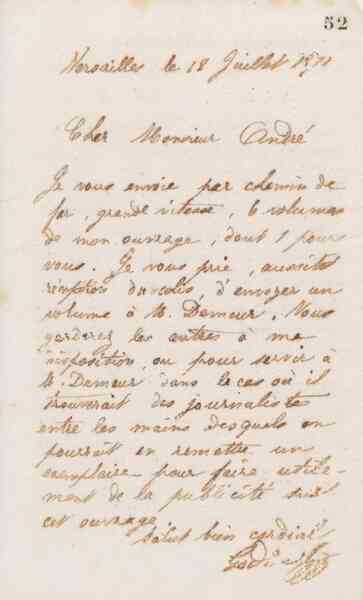 52
Versailles le 18 Juillet 1871
Cher Monsieur André
Je vous envoie par chemin de
fer, grande vitesse, 6 volumes
de mon ouvrage, dont 1 pour
vous. Je vous prie, aussitôt
réception du colis, d'envoyer un
volume à M. Demeur. Vous
garderez les autres à ma
disposition, ou pour servir à
M. Demeur dans le cas où il
trouverait des journalistes
entre les mains desquels on
pourrait en remettre un
exemplaire pour faire utile-
ment de la publicité sur
cet ouvrage
Salut bien cordial